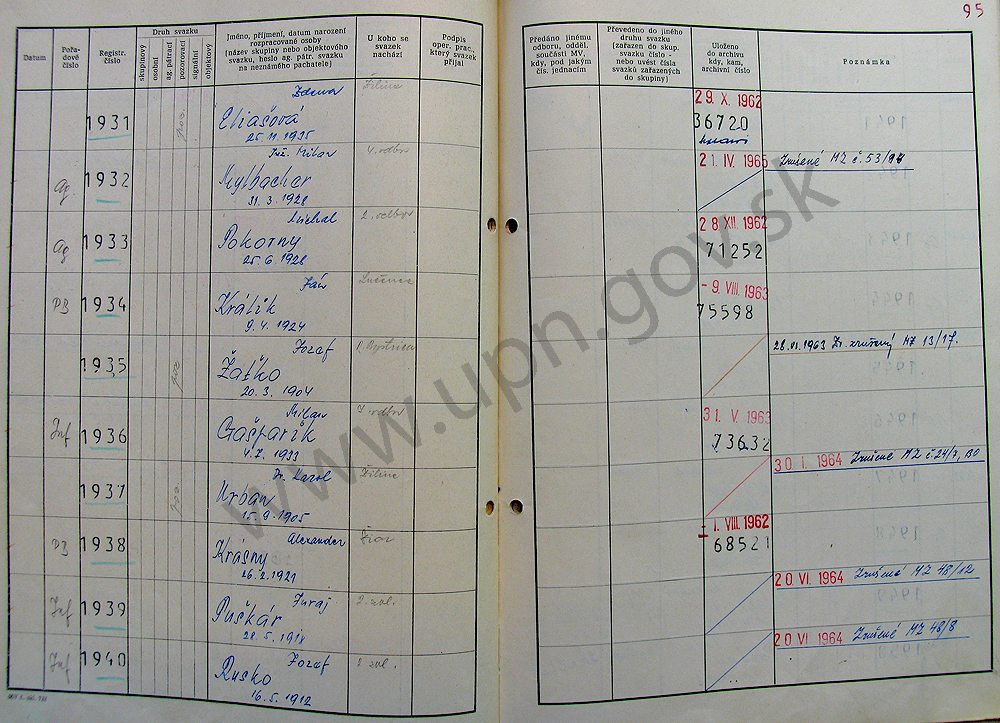 95
Datum
Pořa-
dové
číslo
Registr.
číslo
Druh svazku
skupinový
osobní
ag. pátrací
pozorovací
signální
objektový
Jméno, příjmení, datum narození
rozpracované osoby
(název skupiny nebo objektového
svazku, heslo ag. pátr. svazku
na neznámého pachatele)
U koho se
svazek
nachází
Podpis
oper. prac.,
který svazek
přijal
Předáno jinému
odboru, odděl.
součásti MV.
kdy, pod jakým
čís. jednacím
Převedeno do jiného
druhu svazku
(zařazen do skup.
svazku číslo -
nebo uvést čísla
svazků zařazených
do skupiny)
Uloženo
do archivu
kdy, kam,
archivní číslo
Poznámka
1931
poz.
Zdena
Eliašová
25.11.1935
Žilina
29. X. 1962
36720
Ag.
1932
Inž. Milan
Mylbacher
31. 3. 1928
4. odbor
21. IV. 1965
Zrušené MZ č. 53/
Ag
1933
Michal
Pokorny
25. 6. 1928
2. odbor
28 XII. 1962
71252
PB
1934
Ján
Králik
9. 4. 1924
Lučenec
- 9. VIII. 1963
75598
1935
poz
Jozef
Žaťko
20. 3. 1904
B. Bystrica
28. VI. 1963 zrušený MZ 13/17.
Inf
1936
Milan
Gašparik
4. 7. 1933
odbor
31. V. 1963
73632
1937
poz.
Dr. Karol
Urban
15. 9. 1905
Žilina
30. I. 1964
Zrušené MZ č. 24/7,
PB
1938
Alexander
Krásny
26. 2. 1921
- 1. VIII. 1962
68521
Inf
1939
Juraj
Puškár
28. 5. 1918
20 VI. 1964
Zrušené MZ 48/12
Inf
1940
Jozef
Rusko
16. 5. 1912
20 VI 1964
Zrušené MZ 48/8
www.upn.gov.sk